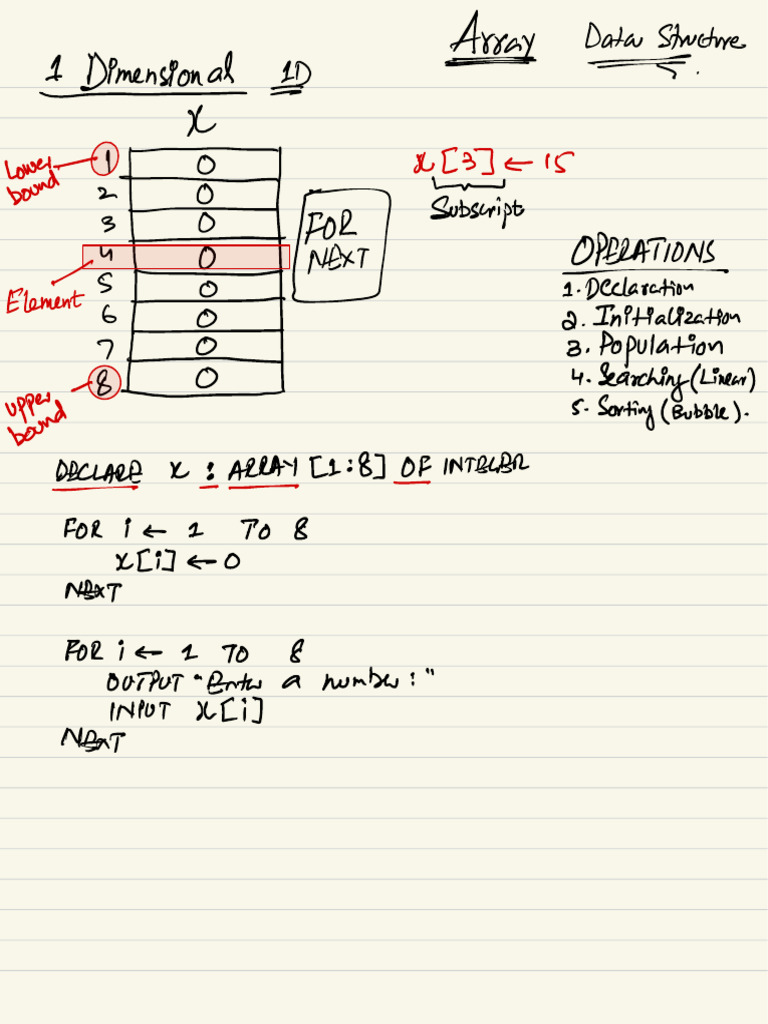 Array Data Structure
1 Dimensional 1D
x
Lower bound
1 0
2 0
3 0
4 0
5 0
6 0
7 0
8 0
Element
upper bound
FOR
NEXT
x[3] ← 15
Subscript
OPERATIONS
1. Declaration
2. Initialization
3. Population
4. Searching (Linear)
5. Sorting (Bubble).
DECLARE x : ARRAY [1:8] OF INTEGER
FOR i ← 1 TO 8
x[i] ← 0
NEXT
FOR i ← 1 TO 8
OUTPUT "Enter a number:"
INPUT x[i]
NEXT